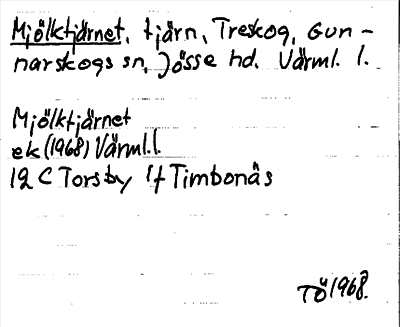 Mjölktjärnet, tjärn, Treskog, Gun-
narskogs sn, Jösse hd. Värml. l.
Mjölktjärnet
ek (1968) Värml.l.
12 C Torsby 1f Timbonäs
TÖ 1968.